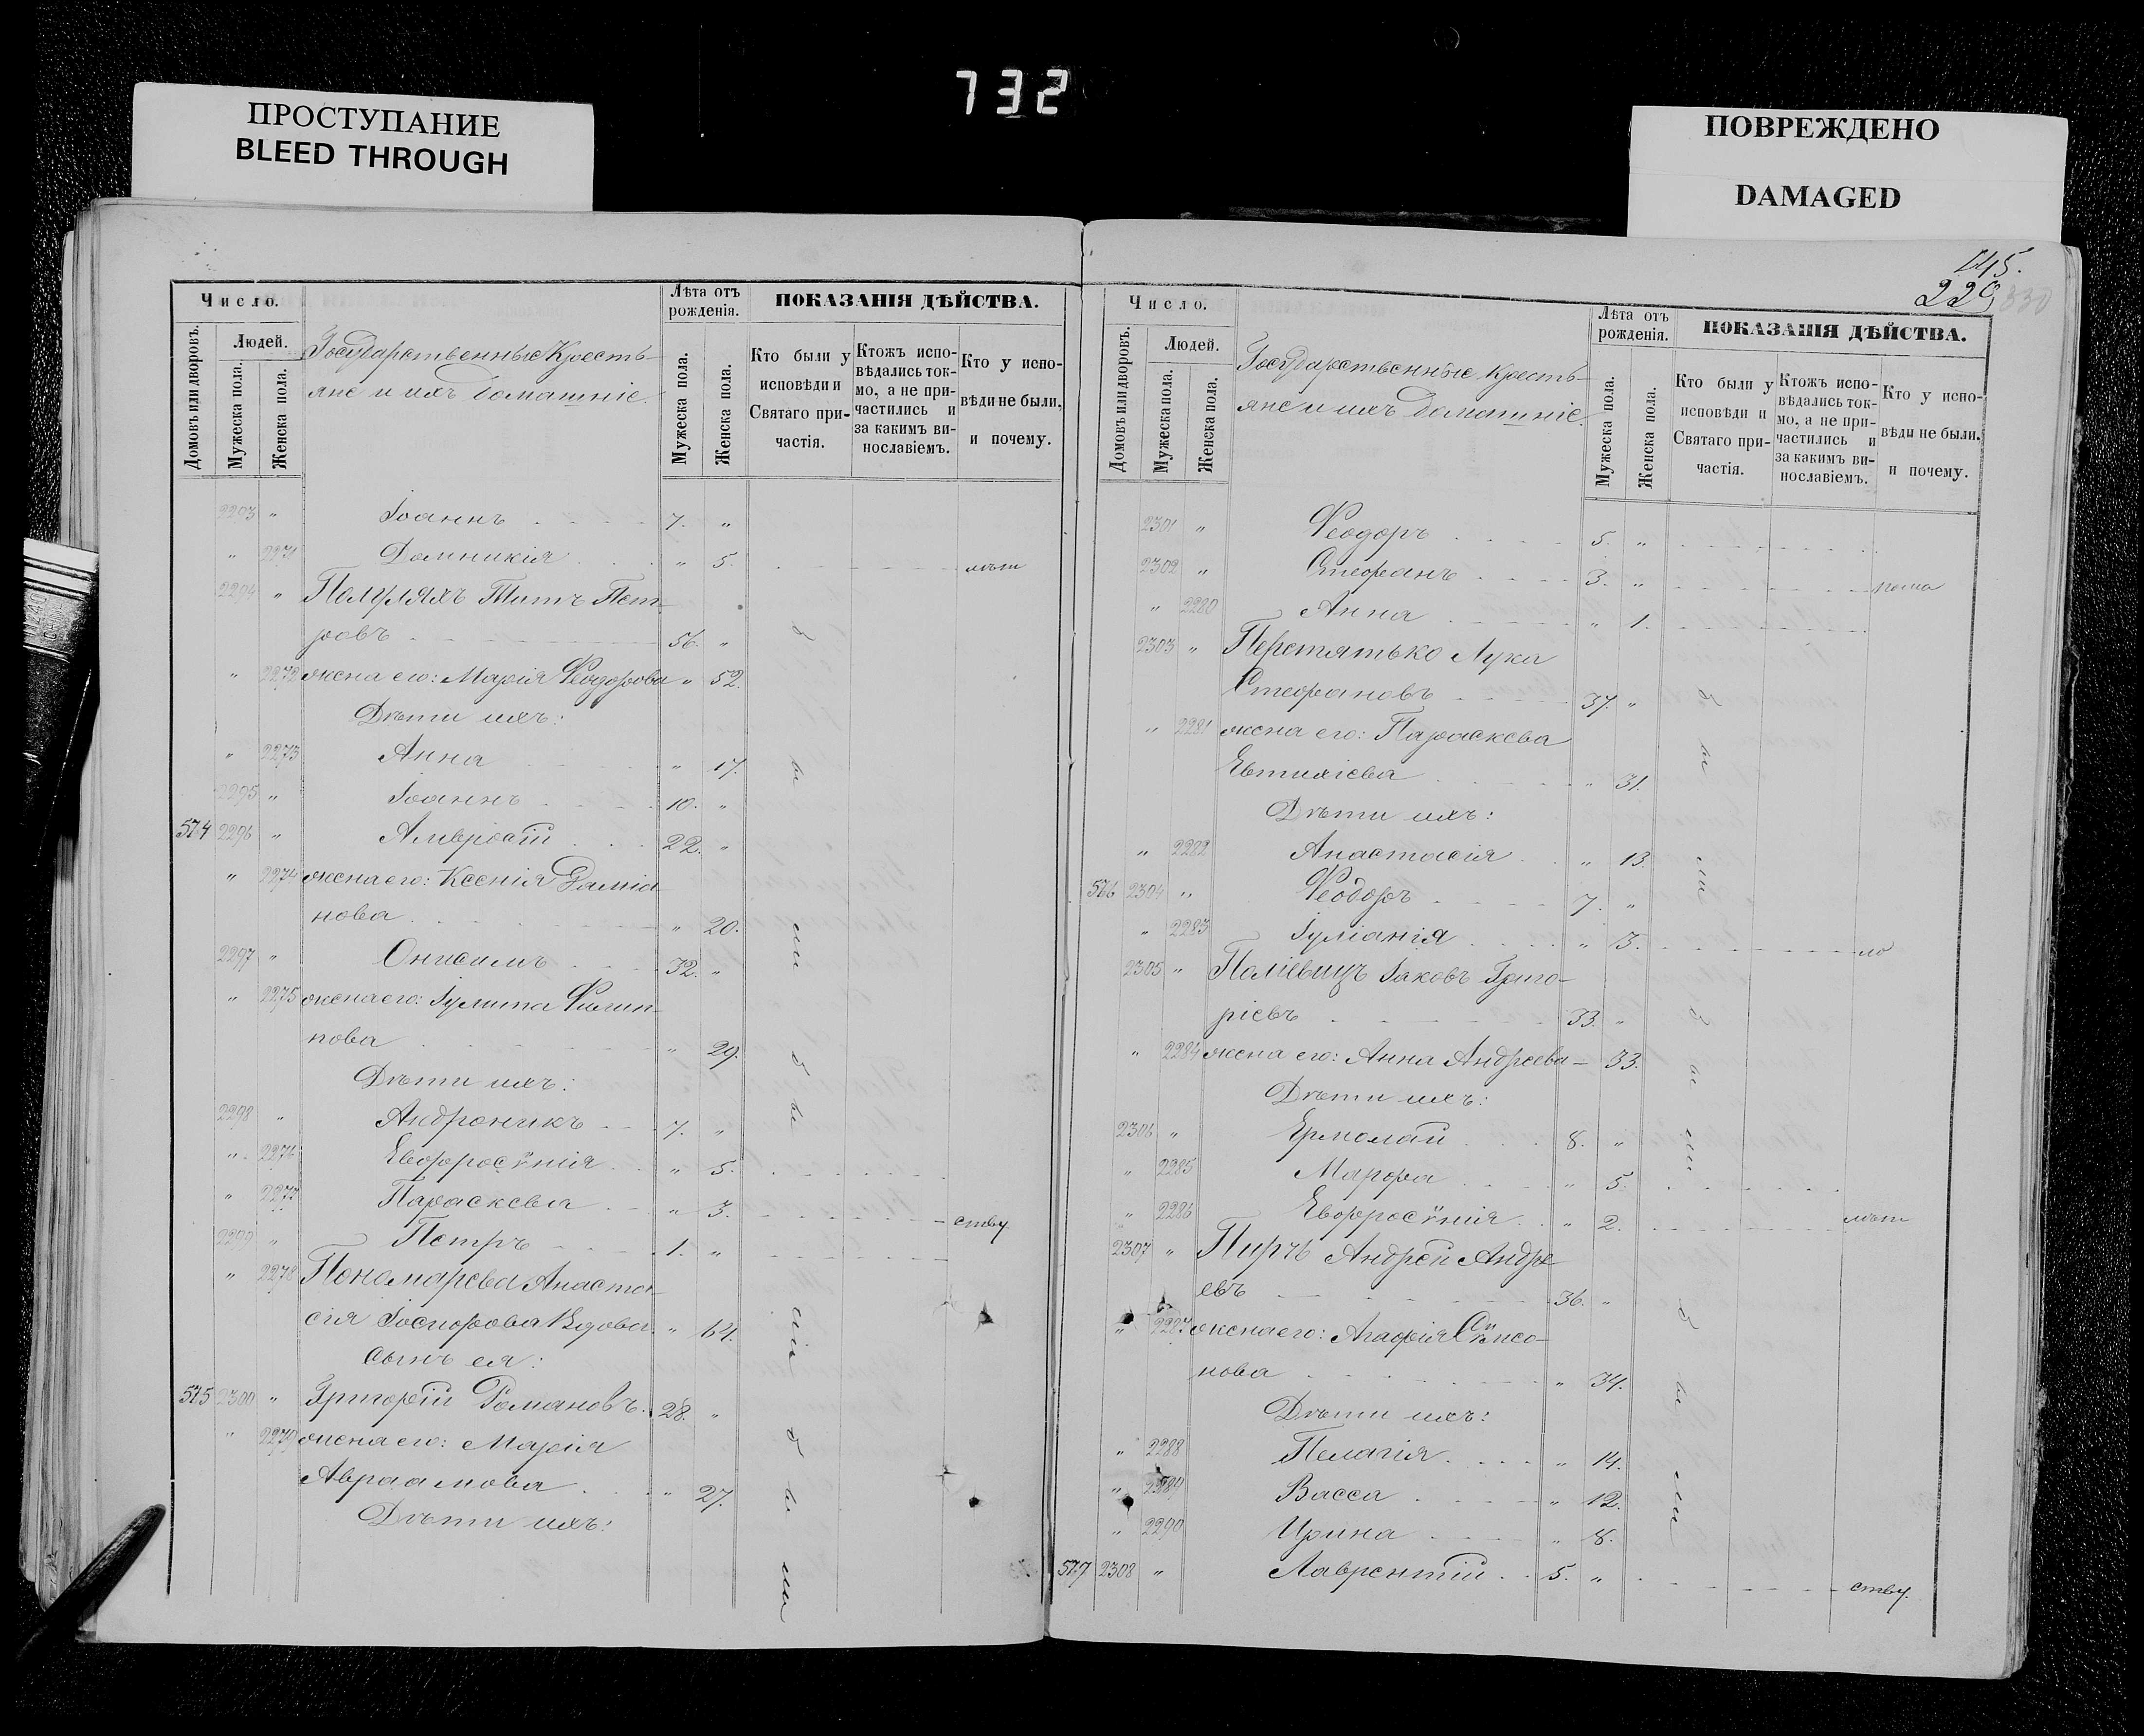 732
ПРОСТУПАНИЕ
BLEED THROUGH
ПОВРЕЖДЕНО
DAMAGED
Число.
Людей.
Домовъ или дворовъ.
Мужеска пола.
Женска пола.
Государственные Кресть-
яне и ихъ домашніе.
Лѣта отъ рожденія.
Мужеска пола.
Женска пола.
ПОКАЗАНІЯ ДѢЙСТВА.
Кто были у исповѣди и Святаго при-частія.
Ктожъ испо-вѣдались ток-мо, а не при-частились и за какимъ ви-нославіемъ.
Кто у испо-вѣди не были, и почему.
2293 " Іоаннъ 7. "
" 2271 Домникія " 5. лѣт
2294 " Пашулякъ Титъ Пет-
ровъ 56. "
" 2272 жена его: Марія Ѳеодорова " 52.
Дѣти ихъ:
" 2273 Анна " 17.
2295 " Іоаннъ 10. "
574 2296 " Амвросій 22. "
" 2274 жена его: Ксенія Даміа-
нова " 20.
2297 " Онисимъ 32. "
" 2275 жена его: Іулита Филип-
пова " 29.
Дѣти ихъ:
2298 " Андроникъ 7. "
" 2276 Евфросѵнія " 5.
" 2277 Параскева " 3. ству
2299 " Петръ 1. "
" 2278 Пономарева Анаста-
сія Іосифова Вдова " 64.
сынъ ея:
575 2300 " Григорій Романовъ 28. "
" 2279 жена его: Марія
Авраамова " 27.
Дѣти ихъ:
бы ли
бы ли
бы ли
145.
229
330
Число.
Людей.
Домовъ или дворовъ.
Мужеска пола.
Женска пола.
Государственные Кресть-
яне и ихъ домашніе.
Лѣта отъ рожденія.
Мужеска пола.
Женска пола.
ПОКАЗАНІЯ ДѢЙСТВА.
Кто были у исповѣди и Святаго при-частія.
Ктожъ испо-вѣдались ток-мо, а не при-частились и за какимъ ви-нославіемъ.
Кто у испо-вѣди не были, и почему.
2301 " Ѳеодоръ 5. "
2302 " Стефанъ 3. "
" 2280 Анна " 1.
2303 " Перетятько Лука
Стефановъ 37. "
" 2281 жена его: Параскева
Евтихіева " 31.
Дѣти ихъ:
" 2282 Анастасія " 13.
576 2304 " Ѳеодоръ 7. "
" 2283 Іуліанія " 3. ло
2305 " Паліевицъ Іаковъ Григо-
ріевъ 33. "
" 2284 жена его: Анна Андреева – 33.
Дѣти ихъ:
2306 " Ермолай 8. "
" 2285 Марфа " 5.
" 2286 Евфросѵнія " 2. лѣт
2307 " Пирчъ Андрей Андре-
евъ 36. "
" 2287 жена его: Агафія Сѵмео-
нова " 34.
Дѣти ихъ:
" 2288 Пелагія " 14.
" 2289 Васса " 12.
" 2290 Ирина " 8.
577 2308 " Лаврентій 5. " ству.
бы ли
бы ли
бы ли